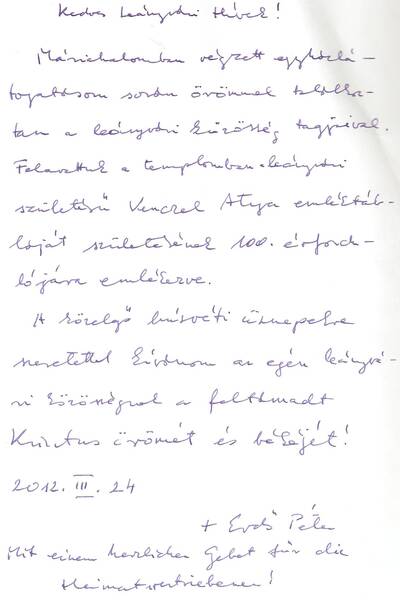 Kedves Leányvári Hívek!
Máriahalomban végzett egyházlá-
togatásom során örömmel találkoz-
tam a leányvári közösség tagjaival.
Felavattuk a templomban a leányvári
születésű Venczel Atya emléktáb-
láját születésének 100. évfordu-
lójára emlékezve.
A közelgő húsvéti ünnepekre
szeretettel kívánom az egész leányvá-
ri közösségnek a feltámadt
Krisztus örömét és békéjét!
2012. III. 24
+ Erdő Péter
Mit einem herzlichen Gebet für die
Heimatvertriebenen!